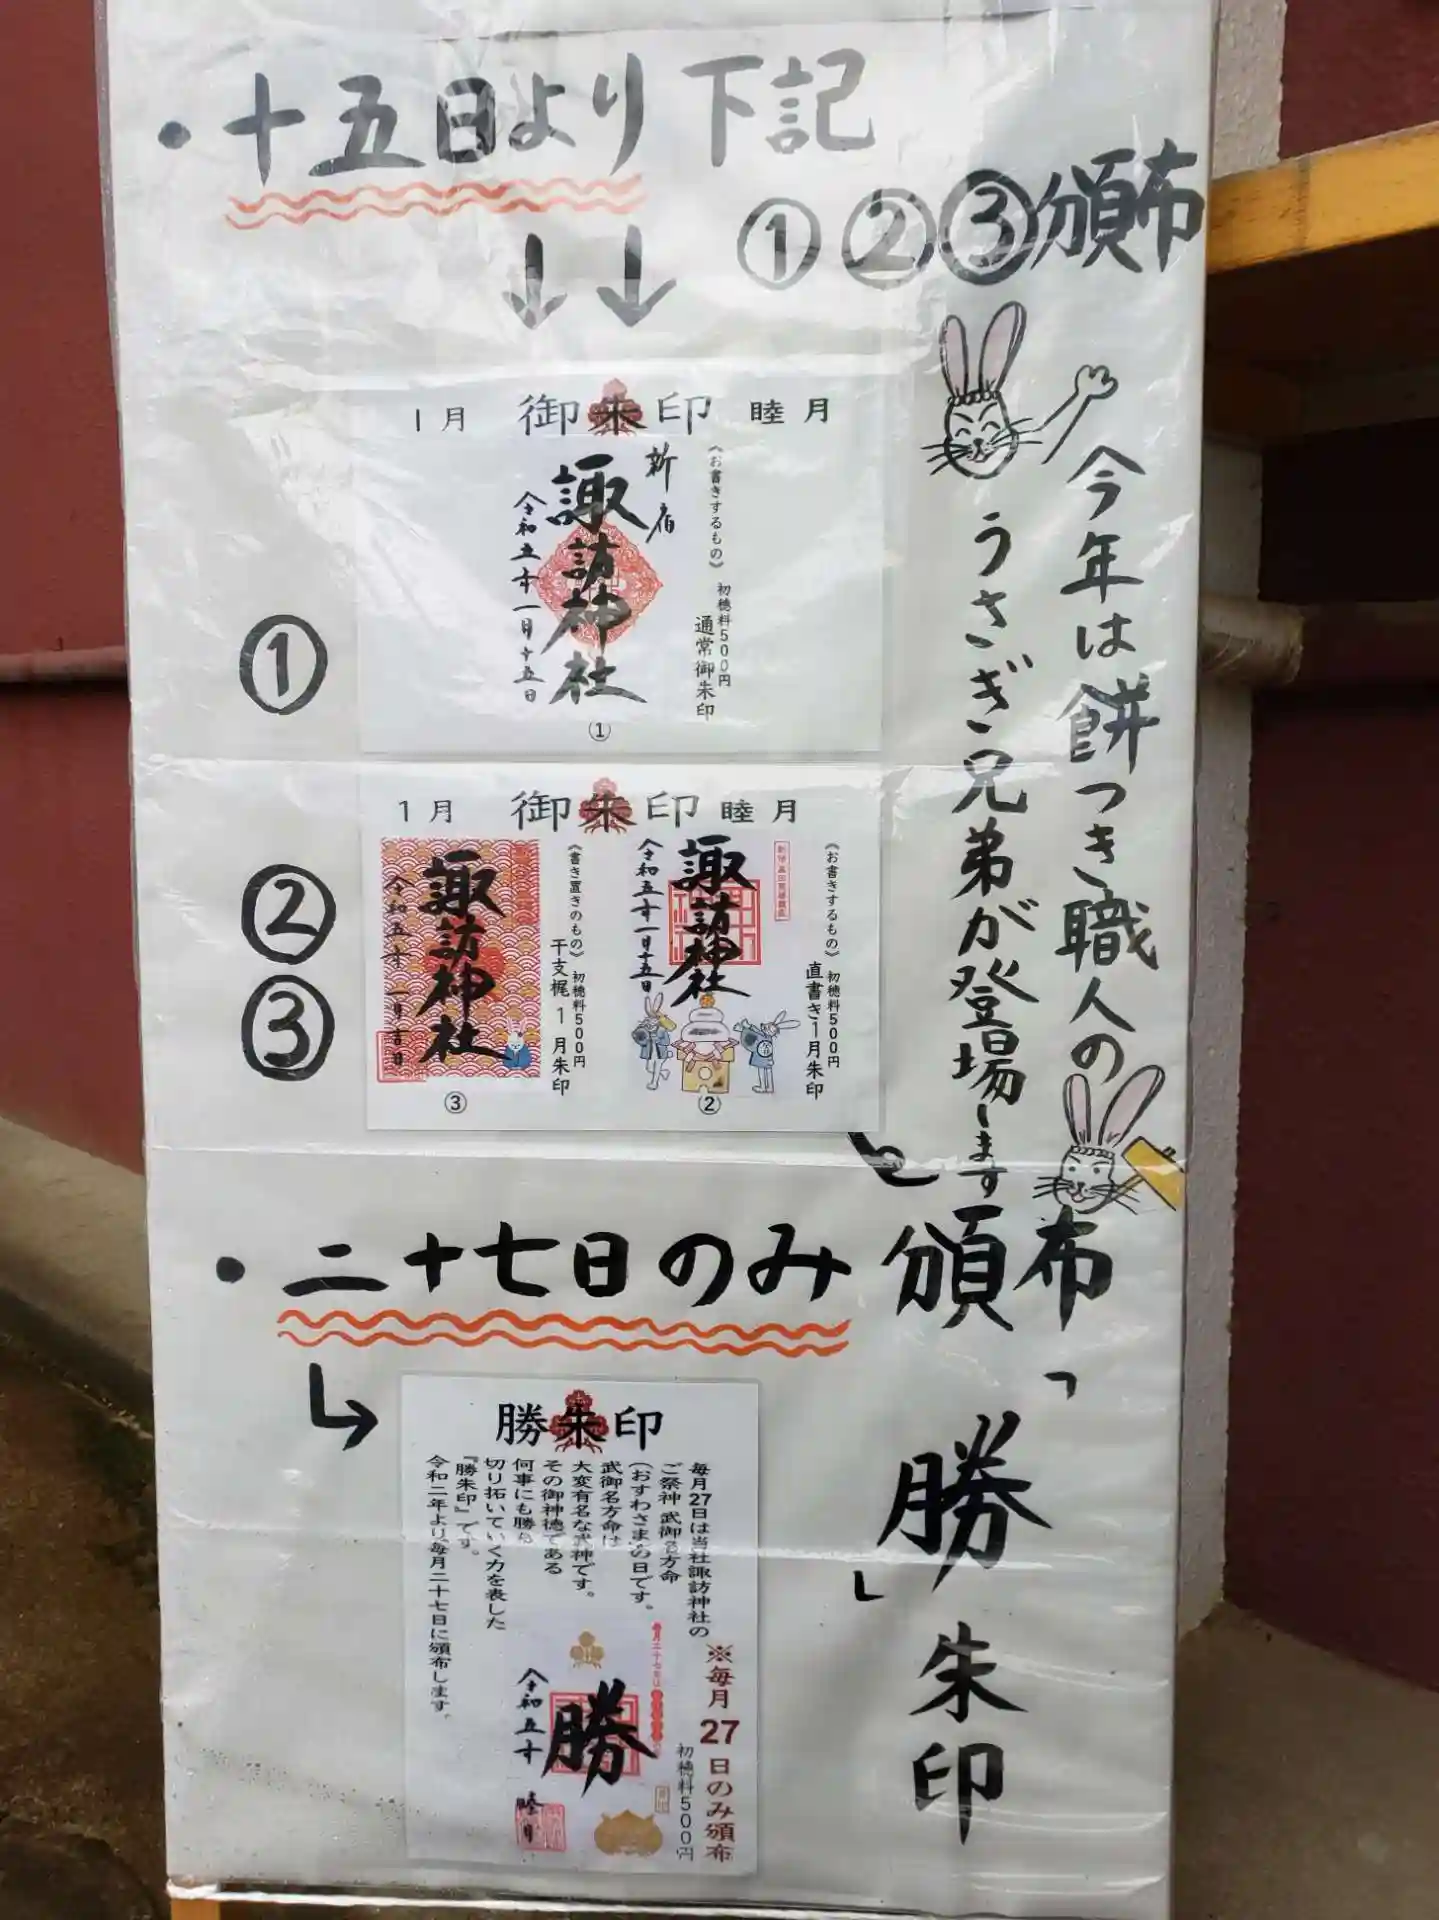 ・十五日より下記
①②③頒布
↓↓
今年は餅つき職人の
うさぎ兄弟が登場します
①
1月 御朱印 睦月
《お書きするもの》 初穂料500円
通常御朱印
新宿
諏訪神社
令和五年一月十五日
①
②
③
1月 御朱印 睦月
《お書きするもの》 初穂料500円
直書き1月朱印
諏訪神社
令和五年一月十五日
②
《書き置きのもの》 初穂料500円
干支梶1月朱印
諏訪神社
令和五年 一月吉日
③
・二十七日のみ頒布
「勝朱印」
勝朱印
毎月27日は当社諏訪神社の
ご祭神 武御名方命
(おすわさま)の日です。
武御名方命は
大変有名な武神です。
その御神徳である
何事にも勝ち
切り拓いていく力を表した
『勝朱印』です。
令和二年より、毎月二十七日に頒布します。
※毎月27日のみ頒布
初穂料500円
勝
令和五年 睦月